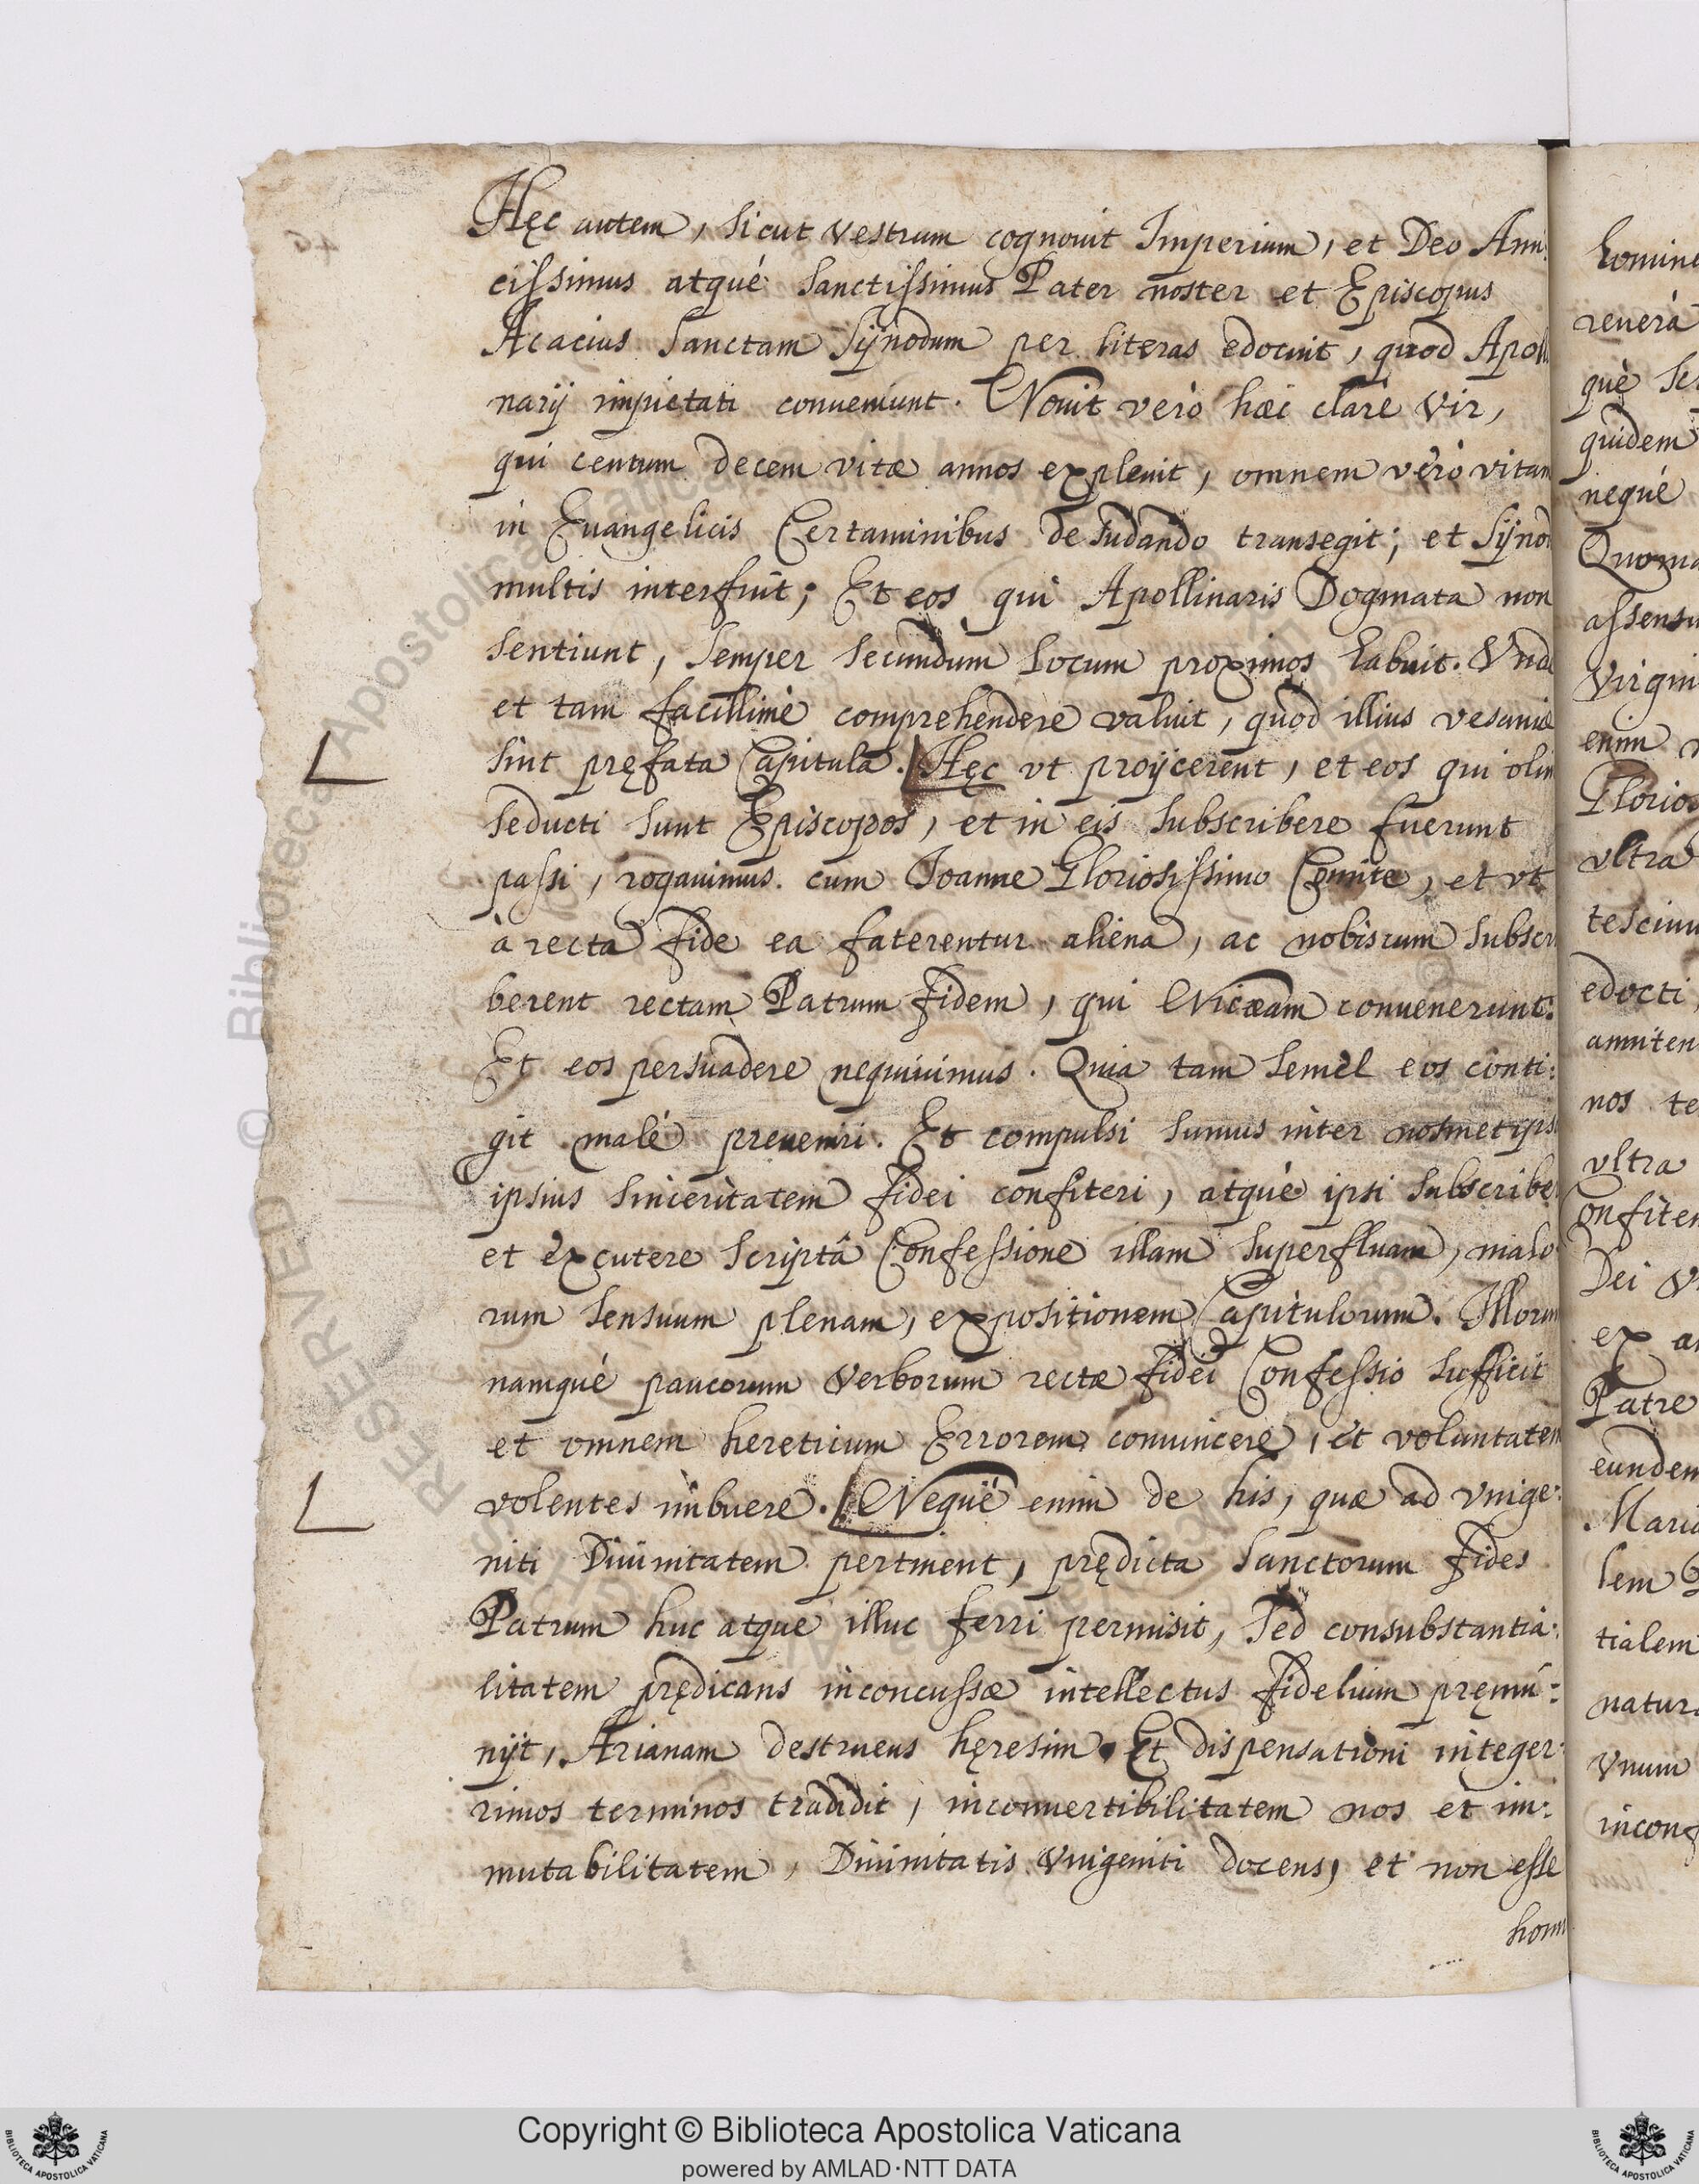 Hęc autem, sicut vestrum cognouit Imperium, et Deo Ami:
cissimus atqué Sanctissimus Pater noster et Episcopus
Acacius Sanctam Sijnodum per literas edocuit, quod Apolli
narij impietati conueniunt. Nouit verò hæc clarè Vir,
qui centum decem vitæ annos expleuit, omnem verò vitam
in Euangelicis Certaminibus desudando transegit; et Sijnod
multis interfuit; Et eos qui Apollinaris Dogmata non
sentiunt, semper secundum locum proximos habuit. Vnde
et tam facillimè comprehendere valuit, quod illius vesaniæ
sint pręfata Capitula. Hęc vt proijcerent, et eos qui olim
seducti sunt Episcopos, et in eis subscribere fuerunt
passi, rogauimus. cum Ioanne Gloriosissimo Comite, et vt
à recta fide ea faterentur aliena, ac nobiscum subscri
berent rectam Patrum fidem, qui Nicæam conuenerunt:
Et eos persuadere nequiuimus. Quia tam semel eos conti:
git malé preueniri. Et compulsi sumus inter nosmetipsos
ipsius sinceritatem fidei confiteri, atqué ipsi subscribe
et excutere scriptâ Confessione illam superfluam, malo
rum sensuum plenam, expositionem Capitulorum. Illorum
namqué paucorum verborum rectæ fidei Confessio sufficit
et omnem hereticum Errorem conuincere, et voluntatem
volentes imbuere. Neque enim de his, quæ ad Vnige:
niti Diuinitatem pertinent, prędicta Sanctorum fides
Patrum huc atque illuc ferri permisit, Sed consubstantia:
litatem prędicans inconcussæ intellectus fidelium pręmú:
nijt, Arianam destruens hęresim. Et dispensationi integer:
rimos terminos tradidit, inconuertibilitatem nos et im:
mutabilitatem, Diuinitatis Vnigeniti docens, et non esse
homi
homine
reuerà
què
quidem
nequé
assensu
Virgini
enim
Glorios
vltra
tescimu
edocti,
nos te
vltra
onfiten
Dei
ex
Patre
eundem
Maria
lem
tialem
natura
vnum
inconf
© Biblioteca Apostolica Vaticana
Copyright © Biblioteca Apostolica Vaticana
powered by AMLAD·NTT DATA
BIBLIOTECA APOSTOLICA VATICANA
BIBLIOTECA APOSTOLICA VATICANA